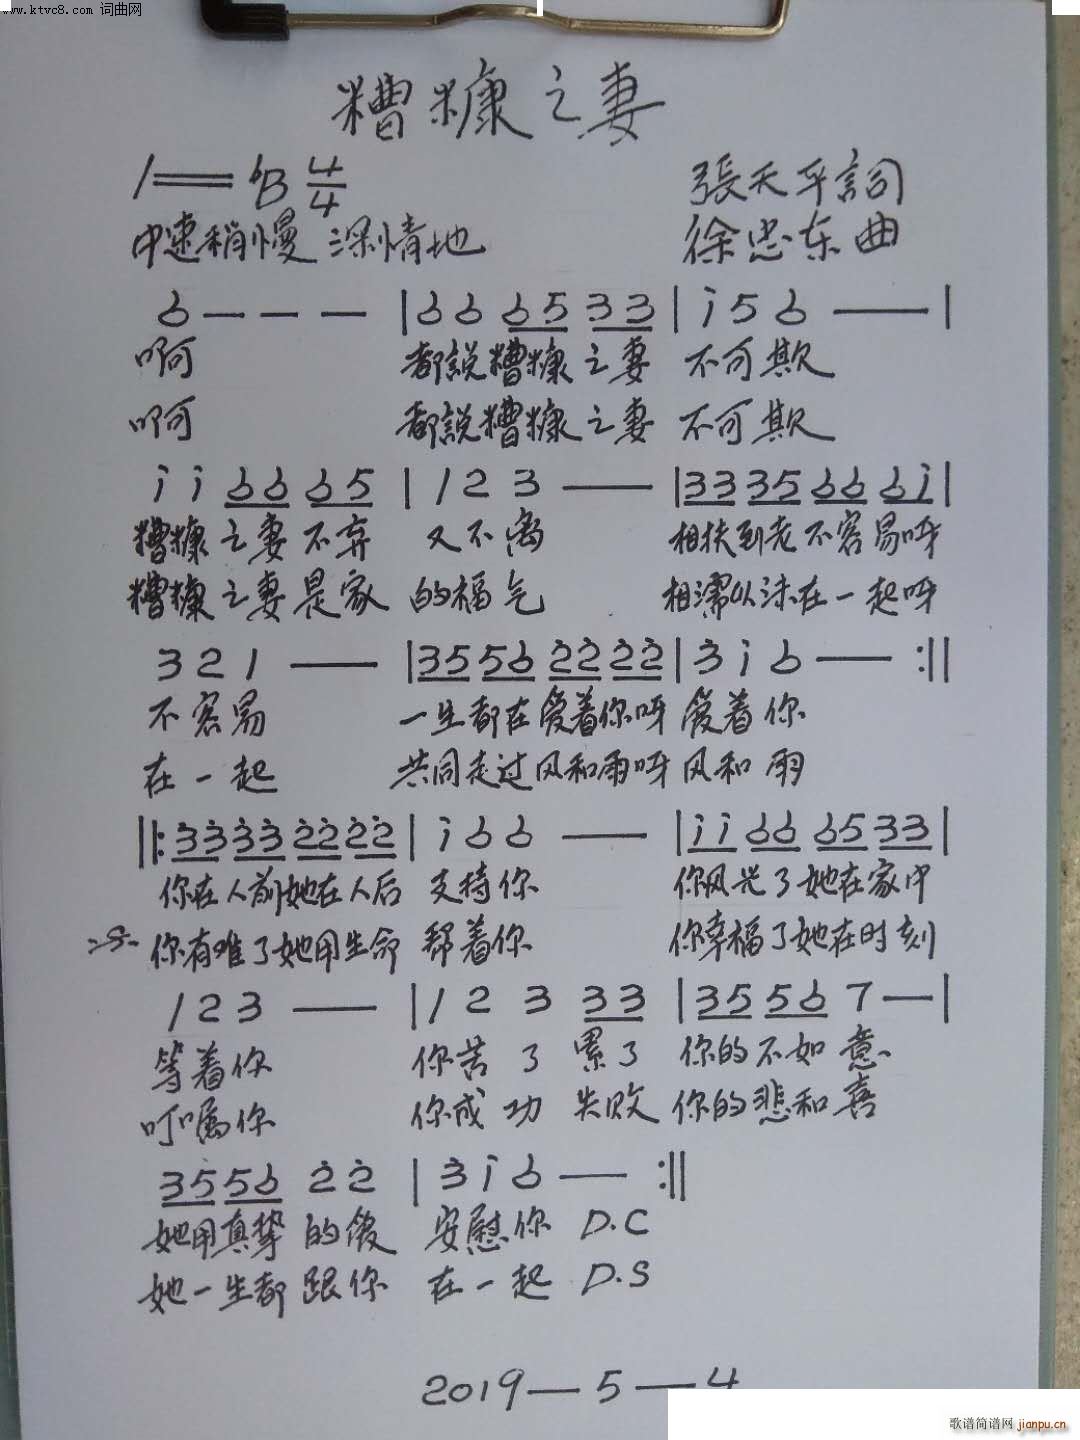 www.ktvc8.com 词曲网
糟糠之妻
1=♭B 4/4 張天平詞
中速稍慢 深情地 徐忠东曲
6 — — — | 6 6 6 5 3 3 | i 5 6 — |
啊 都説糟糠之妻 不可欺
啊 都説糟糠之妻 不可欺
i i 6 6 6 5 | 1 2 3 — | 3 3 3 5 6 6 6 i |
糟糠之妻不弃 又不离 相扶到老不容易呀
糟糠之妻是家 的福气 相濡以沫在一起呀
3 2 1 — | 3 5 5 6 2 2 2 2 | 3 i 6 — :||
不容易 一生都在爱着你呀 爱着你
在一起 共同走过风和雨呀 风和雨
||: 3 3 3 3 2 2 2 2 | i 6 6 — | i i 6 6 6 5 3 3 |
你在人前她在人后 支持你 你风光了她在家中
你有难了她用生命 帮着你 你幸福了她在时刻
1 2 3 — | 1 2 3 3 3 | 3 5 5 6 7 — |
等着你 你苦了累了 你的不如意
叮嘱你 你成功失败 你的悲和喜
3 5 5 6 2 2 | 3 i 6 — :||
她用真挚的爱 安慰你 D.C
她一生都跟你 在一起 D.S
2019—5—4
歌谱简谱网 jianpu.cn